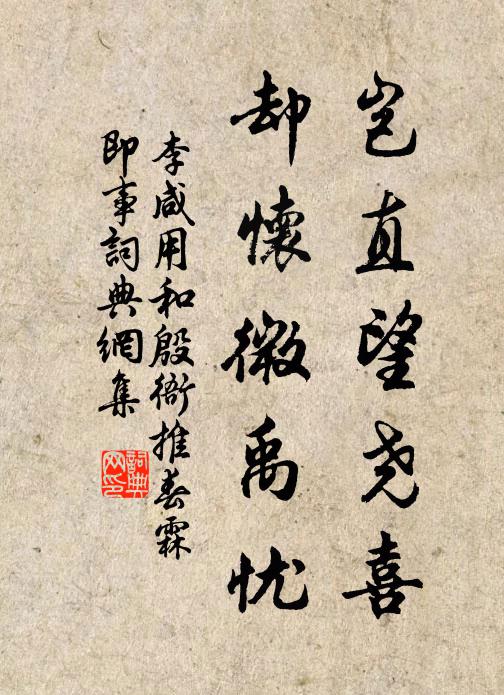 岂直望尧喜
却懷微禹忧
李咸用和殷衙推春霖
即事詞典網集
詞典
网印